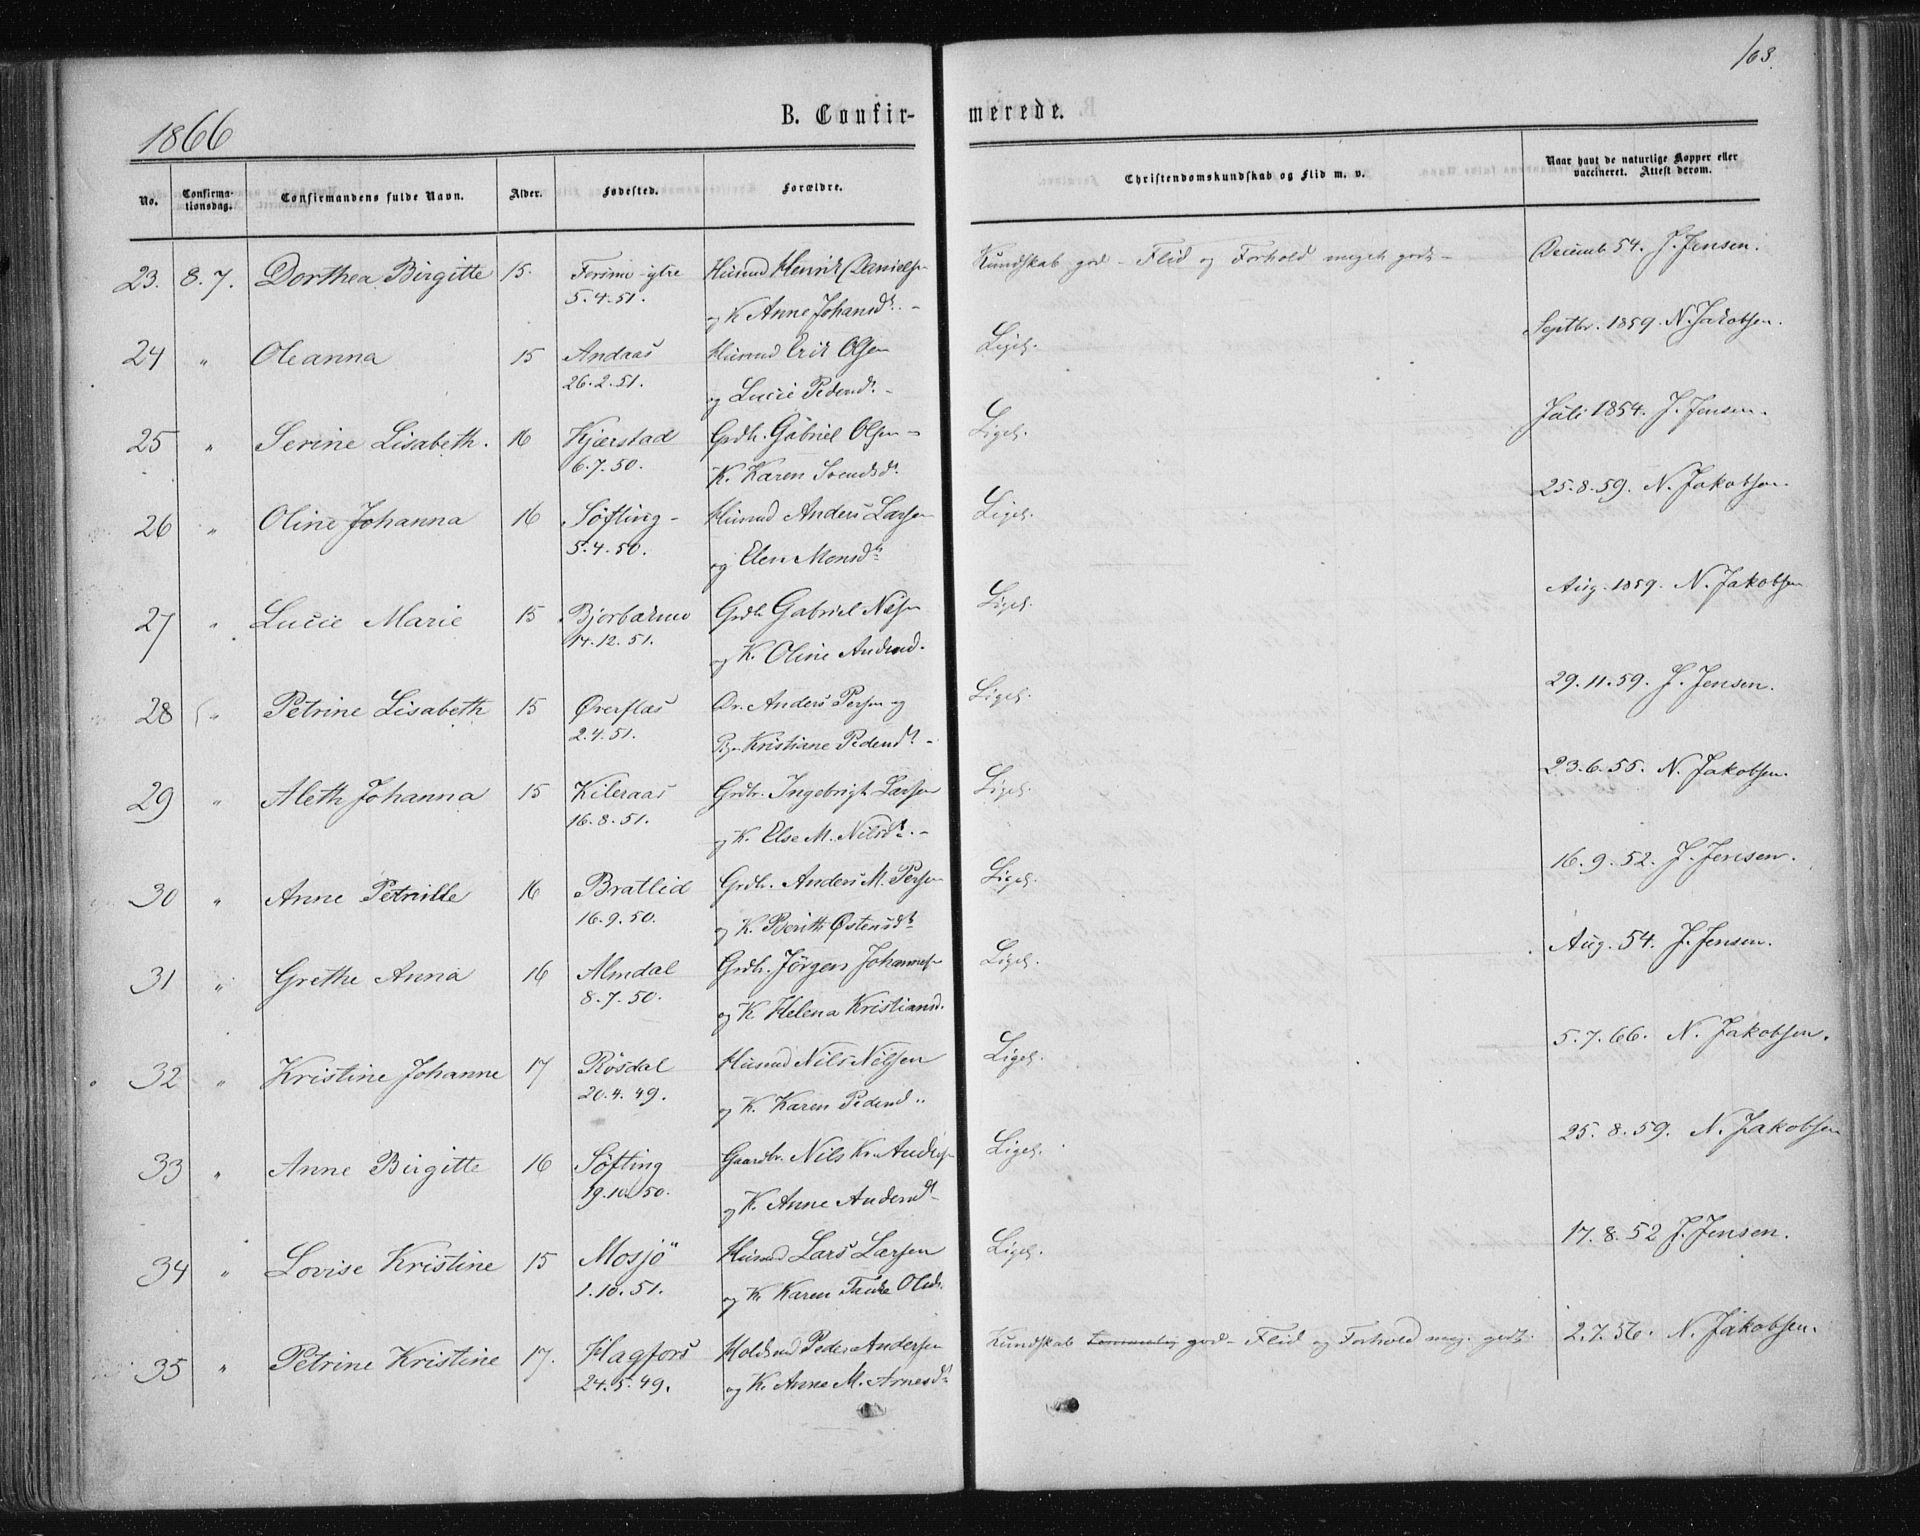 108.
1866
B. Confir-
merede.
No.
Confirma-
tionsdag.
Confirmandens fulde Navn.
Alder.
Fødested.
Forældre.
Christendomskundskab og Flid m. v.
Naar havt de naturlige Kopper eller
vaccineret. Attest derom.
23. 8.7. Dorthea Birgitte 15. Forimo ytre Husmd Henrik Danielsen Kundskab god - Flid og Forhold meget godt - Decemb 54. J. Jensen.
5.4.51. og K Anne Johansdt. -
24 " Oleanna 15 Andaas Husmd Erik Olsen Ligel. Septbr. 1859. N. Jakobsen.
26.2.51. og Lucie Pedersdt. -
25 " Serine Lisabeth. 16 Kjærstad Grdbr. Gabriel Olsen - Ligel. Juli 1854. J. Jensen.
6.7.50. K. Karen Svendsdt.
26 " Oline Johanna 16 Søfting - Husmd Anders Larsen Ligel. 25.8.59. N. Jakobsen.
5.4.50. og Elen Monsdt
27 " Lucie Marie 15 Bjorbækmo Grdbr Gabriel Nilsen Ligel. Aug. 1859. N. Jakobsen
14.12.51. og K. Oline Andersd.
28 " Petrine Lisabeth 15 Øverflas Anders Persen og Ligel. 29.11.59. J. Jensen.
2.4.51. Kristiane Pedersdt -
29 " Aleth Johanna 15 Kileraas Grdbr. Ingebrigt Larsen Ligel. 23.6.55. N. Jakobsen.
16.8.51. og K. Else M. Nilsdt. -
30 " Anne Petrille 16 Bratlid Grdbr. Anders M. Persen Ligel. 16.9.52. J. Jensen.
16.9.50. og K. Berith Østensdt
31 " Grethe Anna 16 Almdal Grdbr. Jörgen Johannesen Ligel. Aug. 54. J. Jensen.
8.7.50. og K Helena Kristiansd.
32 " Kristine Johanne 17 Røsdal Husmd Nils Nilsen Ligel. 5.7.66. N. Jakobsen.
20.4.49. og K. Karen Pedersd.
33 " Anne Birgitte 16 Søfting Gaardbr. Nils Kr. Andersen Ligel. 25.8.59. N. Jakobsen
19.10.50. og K. Anne Andersdt
34 " Lovise Kristine 15 Mosjö Husmd Lars Larsen Ligel. 17.8.52 J. Jensen.
1.10.51. og K. Karen Olsdt.
35 " Petrine Kristine 17. Hagfors Peder Andersen Kundskab temmelig god - Flid og Forhold meg. godt. 2.7.56. N. Jakobsen.
24.5.49. og K. Anne M. Arnesdt